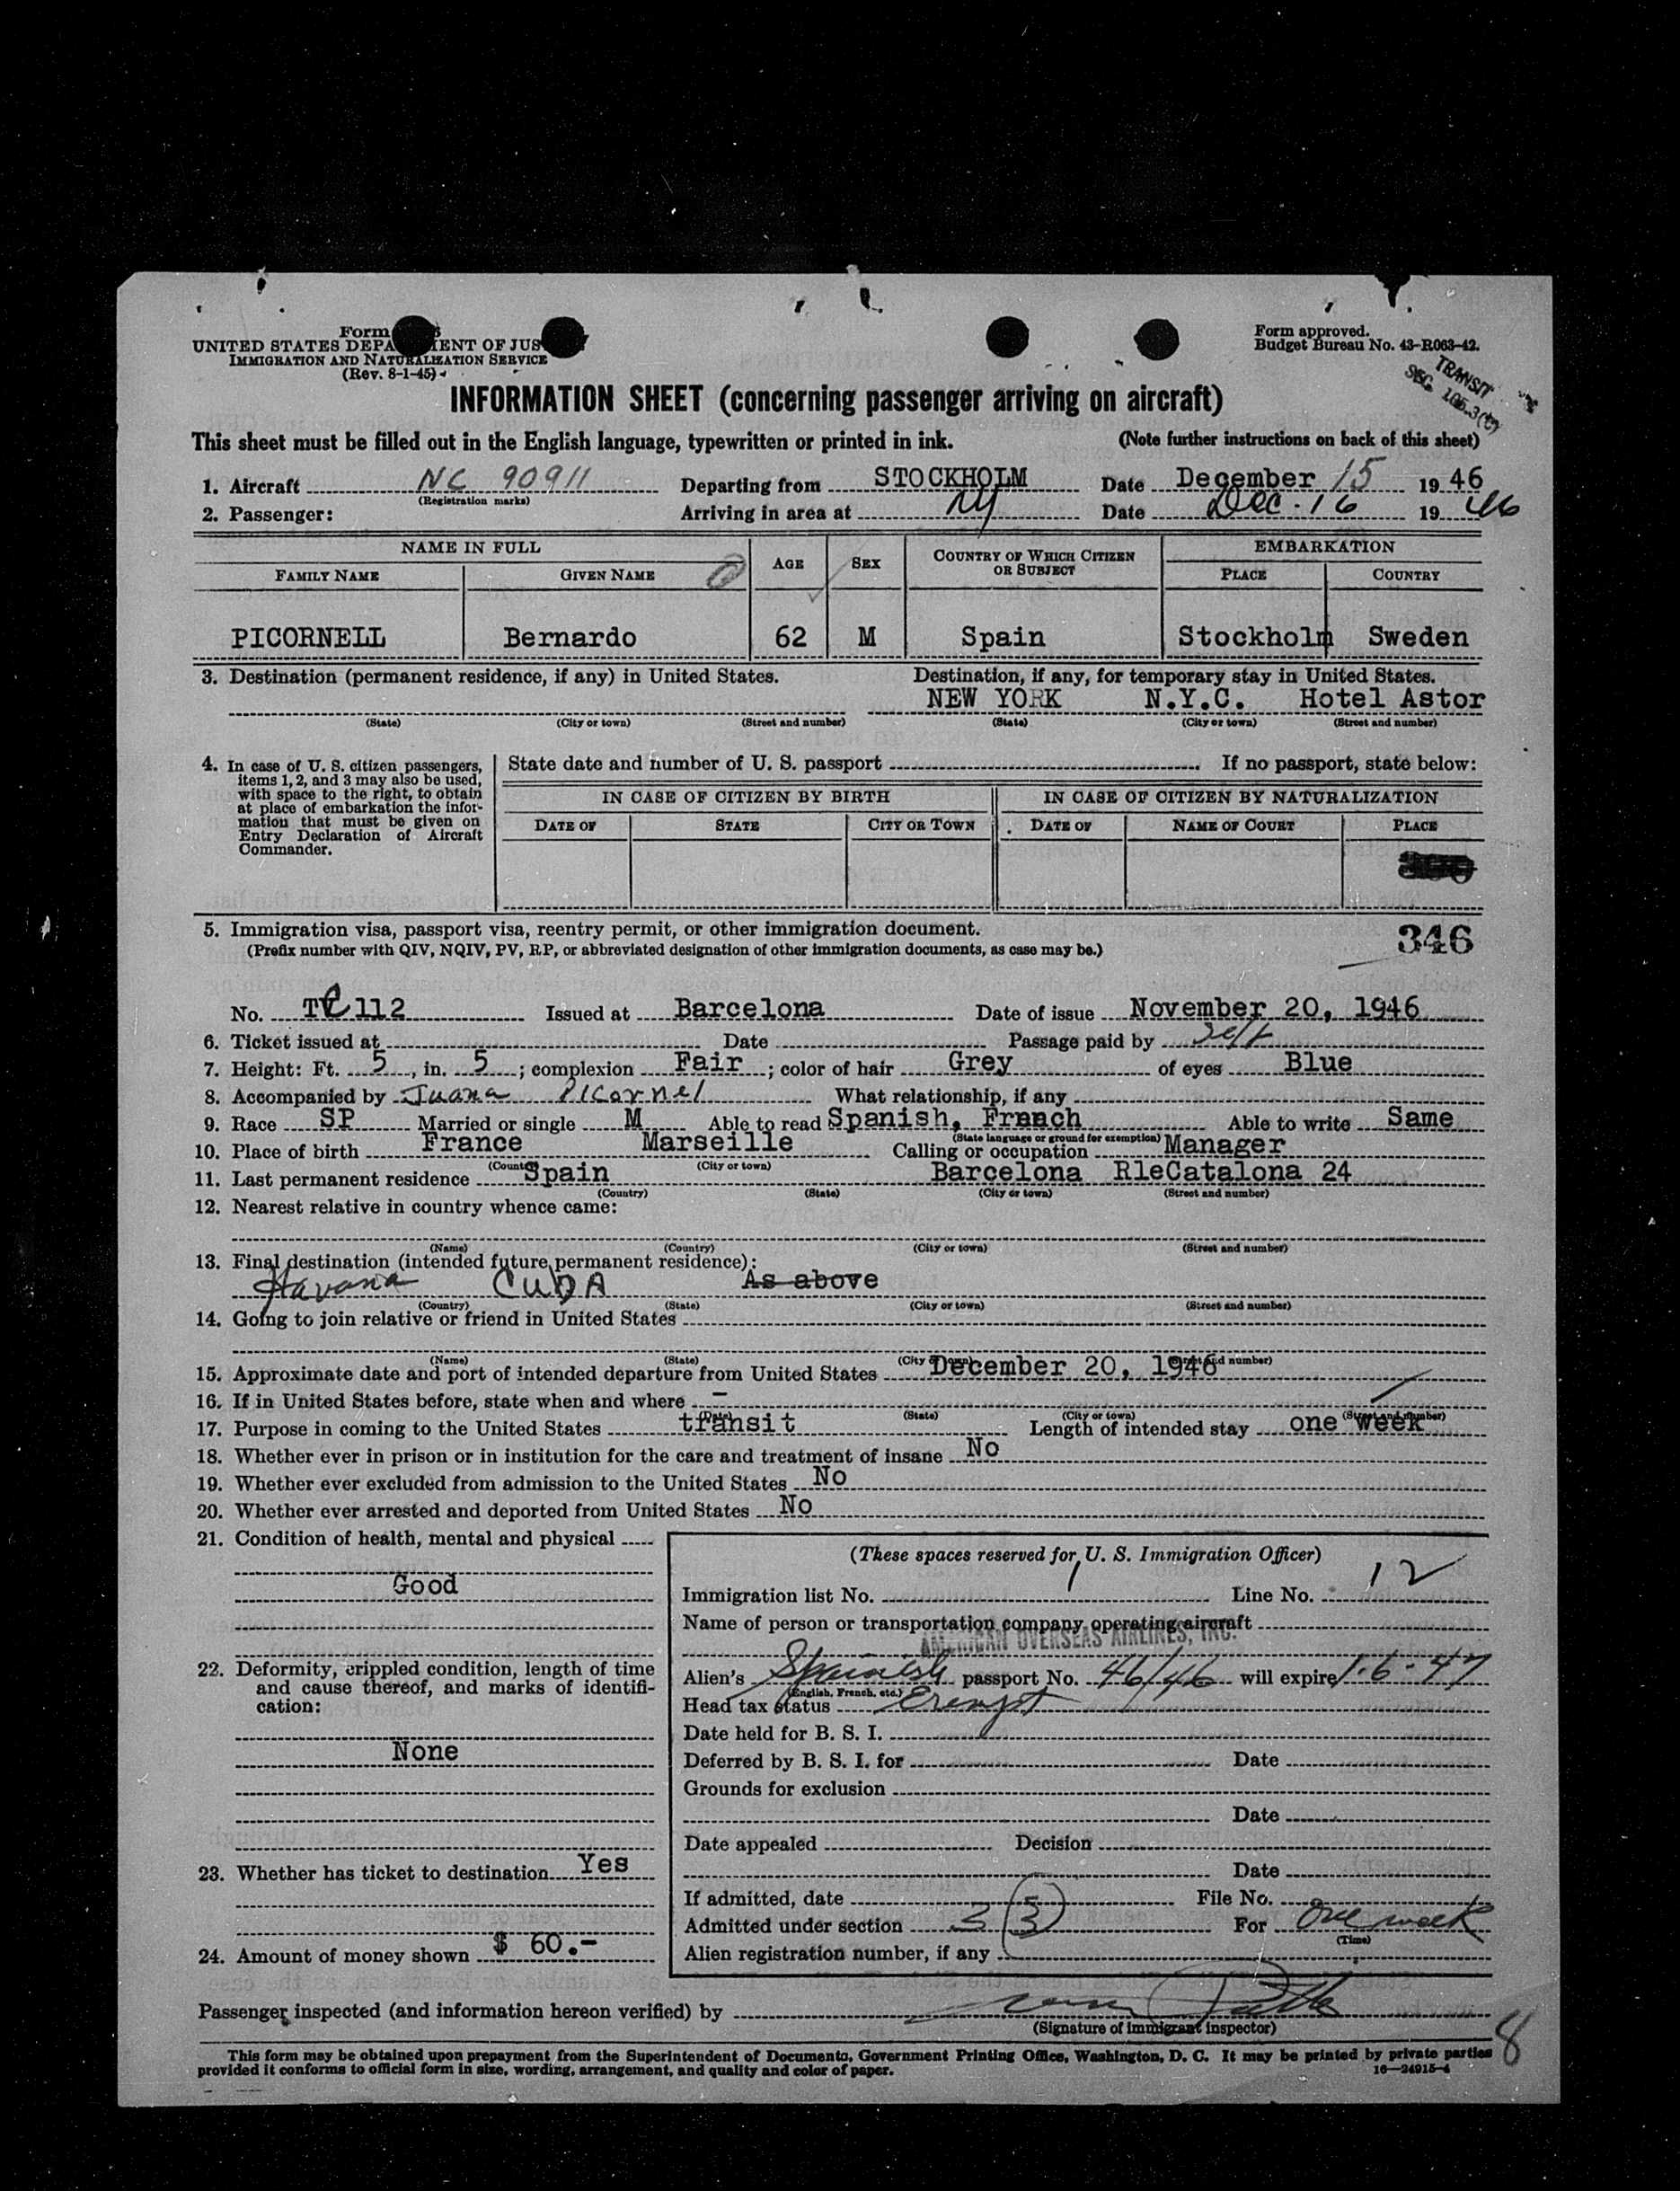 Form
UNITED STATES DEPA ENT OF JUS
IMMIGRATION AND NATURALIZATION SERVICE
(Rev. 8-1-45)
Form approved.
Budget Bureau No. 43-R063-42.
TRANSIT
SEC. 105.3(c)
INFORMATION SHEET (concerning passenger arriving on aircraft)
This sheet must be filled out in the English language, typewritten or printed in ink. (Note further instructions on back of this sheet)
1. Aircraft NC 90911 Departing from STOCKHOLM Date December 15 1946
(Registration marks)
2. Passenger: Arriving in area at NY Date Dec. 16 1946
NAME IN FULL AGE SEX COUNTRY OF WHICH CITIZEN OR SUBJECT EMBARKATION
FAMILY NAME GIVEN NAME PLACE COUNTRY
PICORNELL Bernardo 62 M Spain Stockholm Sweden
3. Destination (permanent residence, if any) in United States. Destination, if any, for temporary stay in United States.
NEW YORK N.Y.C. Hotel Astor
(State) (City or town) (Street and number) (State) (City or town) (Street and number)
4. In case of U. S. citizen passengers, items 1, 2, and 3 may also be used, with space to the right, to obtain at place of embarkation the information that must be given on Entry Declaration of Aircraft Commander.
State date and number of U. S. passport If no passport, state below:
IN CASE OF CITIZEN BY BIRTH IN CASE OF CITIZEN BY NATURALIZATION
DATE OF STATE CITY OR TOWN DATE OF NAME OF COURT PLACE
5. Immigration visa, passport visa, reentry permit, or other immigration document. 346
(Prefix number with QIV, NQIV, PV, RP, or abbreviated designation of other immigration documents, as case may be.)
No. TC 112 Issued at Barcelona Date of issue November 20, 1946
6. Ticket issued at Date Passage paid by self
7. Height: Ft. 5, in. 5; complexion Fair; color of hair Grey of eyes Blue
8. Accompanied by Juana Picornel What relationship, if any
9. Race SP Married or single M Able to read Spanish, French Able to write Same
(State language or ground for exemption)
10. Place of birth France Marseille Calling or occupation Manager
(Country) (City or town)
11. Last permanent residence Spain Barcelona RleCatalona 24
(Country) (State) (City or town) (Street and number)
12. Nearest relative in country whence came:
(Name) (Country) (City or town) (Street and number)
13. Final destination (intended future permanent residence):
Havana CUBA As above
(Country) (State) (City or town) (Street and number)
14. Going to join relative or friend in United States
(Name) (State) (City or town) (Street and number)
15. Approximate date and port of intended departure from United States December 20, 1946
16. If in United States before, state when and where -
(Date) (State) (City or town) (Street and number)
17. Purpose in coming to the United States transit Length of intended stay one week
18. Whether ever in prison or in institution for the care and treatment of insane No
19. Whether ever excluded from admission to the United States No
20. Whether ever arrested and deported from United States No
21. Condition of health, mental and physical
Good
22. Deformity, crippled condition, length of time and cause thereof, and marks of identification:
None
23. Whether has ticket to destination Yes
24. Amount of money shown $ 60.-
(These spaces reserved for U. S. Immigration Officer)
Immigration list No. 1 Line No. 12
Name of person or transportation company operating aircraft
AMERICAN OVERSEAS AIRLINES, INC.
Alien's Spanish passport No. 46/46 will expire 1-6-47
(English, French, etc.)
Head tax status Exempt
Date held for B. S. I.
Deferred by B. S. I. for Date
Grounds for exclusion
Date
Date appealed Decision
Date
If admitted, date File No.
Admitted under section 3 (3) For One week
(Time)
Alien registration number, if any
Passenger inspected (and information hereon verified) by
(Signature of immigrant inspector)
8
This form may be obtained upon prepayment from the Superintendent of Documents, Government Printing Office, Washington, D. C. It may be printed by private parties
provided it conforms to official form in size, wording, arrangement, and quality and color of paper. 16—24915-4